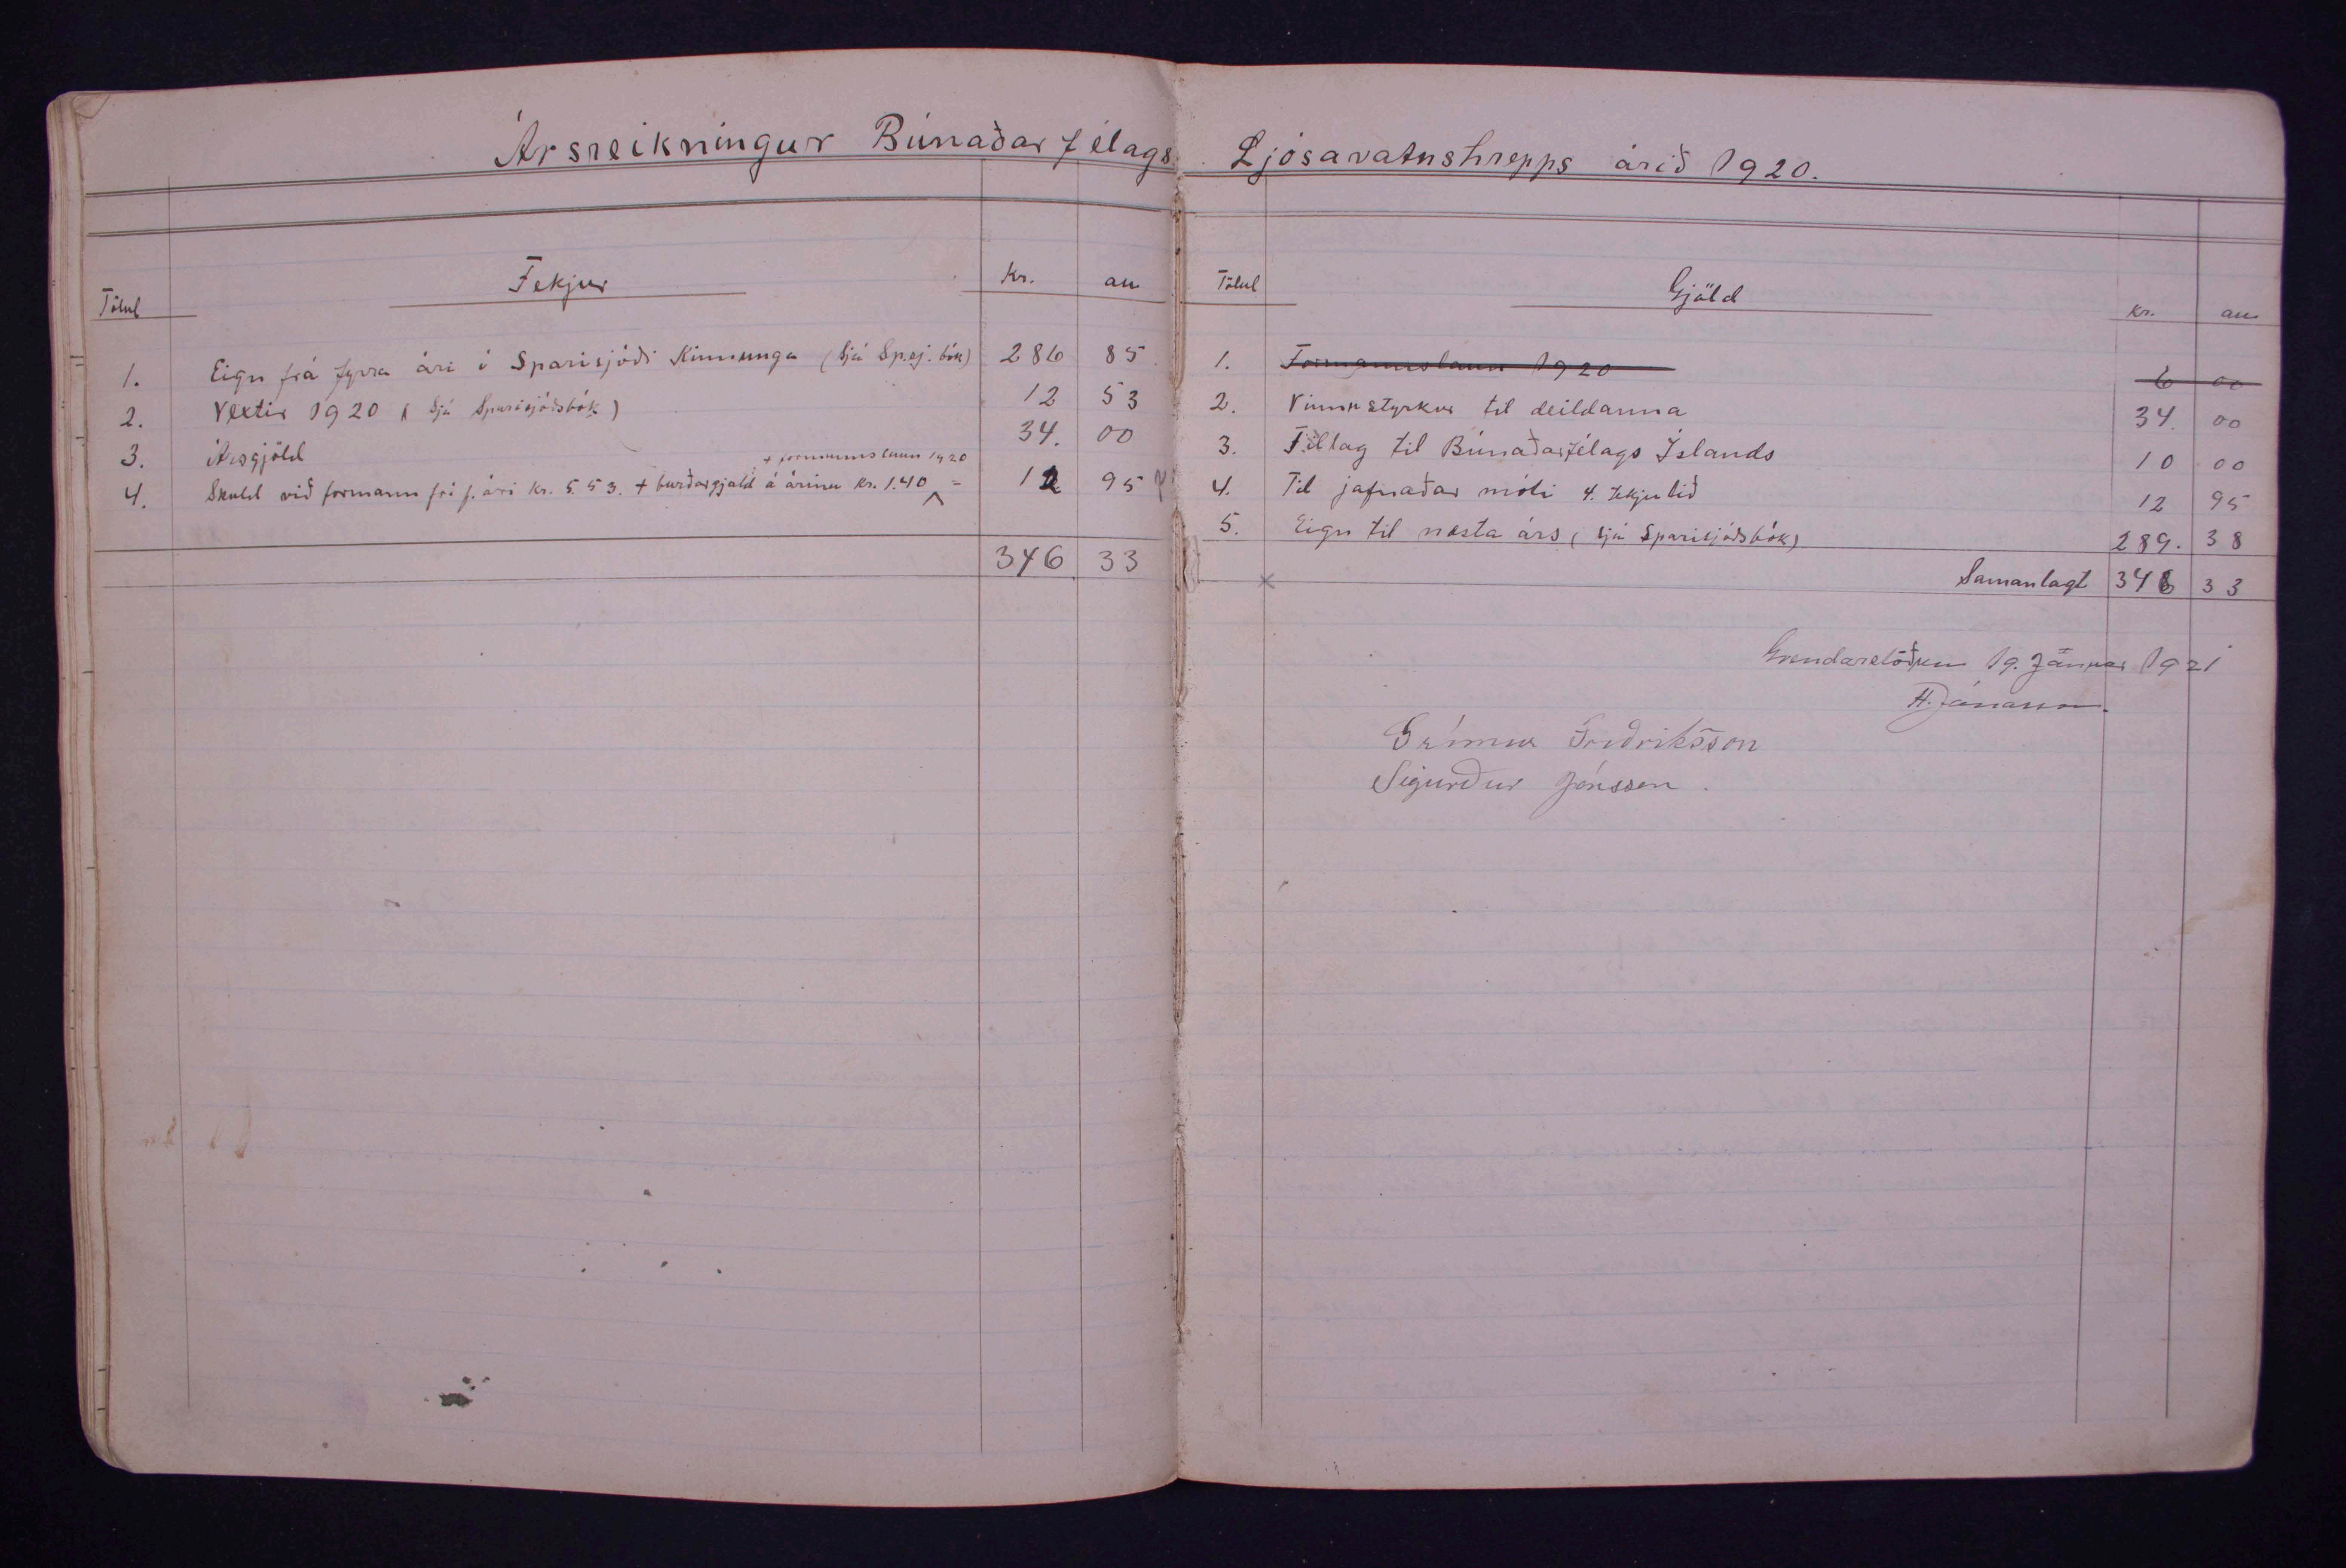 Ársreikningur Búnaðarfélags Ljósavatnshrepps árið 1920.
Tölul Tekjur Kr. au
1. Eign frá fyrra ári í Sparisjóði Kinnunga (Sjá Sp.sj. bók) 286 85
2. Vextir 1920 (Sjá Sparisjóðsbók) 12 53
3. Árgjöld 34. 00
+ formannslaun 1920
4. Skuld við formann frá f. ári Kr. 5.53. + burðargjald á árinu Kr. 1.40 = 12 95
346 33
Tölul Gjöld kr. au
1. Formannslaun 1920 6 00
2. Vinnustyrkur til deildanna 34. 00
3. Tillag til Búnaðarfélags Íslands 10 00
4. Til jafnaðar móti 4. tekjulið 12 95
5. Eign til næsta árs (Sjá Sparisjóðsbók) 289. 38
Samanlagt 346 33
19. Janúar 1921
H. Jónasson.
Grímur Friðriksson
Sigurður Jónsson.